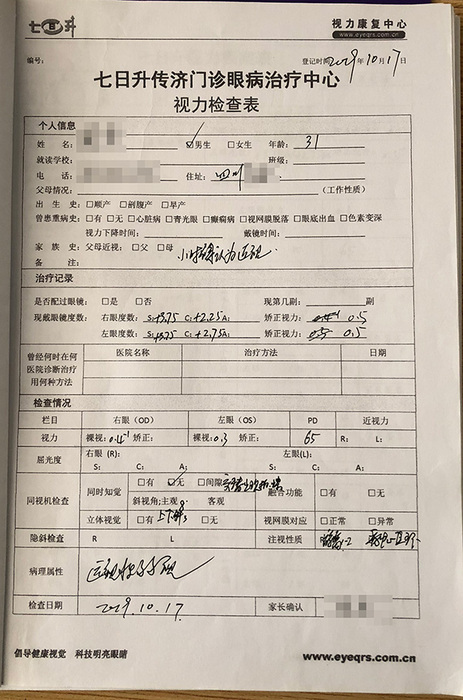 七日升
视力康复中心
www.eyeqrs.com.cn
编号:
登记时间 2019年10月17日
七日升传济门诊眼病治疗中心
视力检查表
个人信息
姓 名: ☑男生 □女生 年龄: 31
就读学校: 班级:
电 话: 住址: 四川
父母情况: (工作性质)
出 生 史: □顺产 □剖腹产 □早产
曾患重病史: □有 □无 □心脏病 □青光眼 □癫痫病 □视网膜脱落 □眼底出血 □色素变深
视力下降时间: 戴镜时间:
家 族 史: 父母近视: □父 □母
备 注: 小时候认为近视
治疗记录
是否配过眼镜: □是 □否 现第几副: 副
现戴眼镜度数: 右眼度数: S:+3.75 C:+2.25 A: 矫正视力: 0.5
左眼度数: S:+3.75 C:+2.75 A: 矫正视力: 0.5
曾经何时在何医院诊断治疗用何种方法 医院名称 治疗方法 日期
检查情况
栏目 右眼(OD) 左眼(OS) PD 近视力
视力 裸视: 矫正: 裸视:0.3 矫正: 65 R: L:
屈光度 右眼 (R): 左眼(L):
S: C: A: S: C: A:
同视机检查 同时知觉 □有 ☑无 □间隙 融合功能 □有 □无
斜视角:主观 客观
立体视觉 □有 □无 视网膜对应 □正常 □异常
隐斜检查 R L 注视性质
病理属性 远视性弱视
检查日期 2019.10.17 家长确认
倡导健康视觉 科技明亮眼睛
www.eyeqrs.com.cn